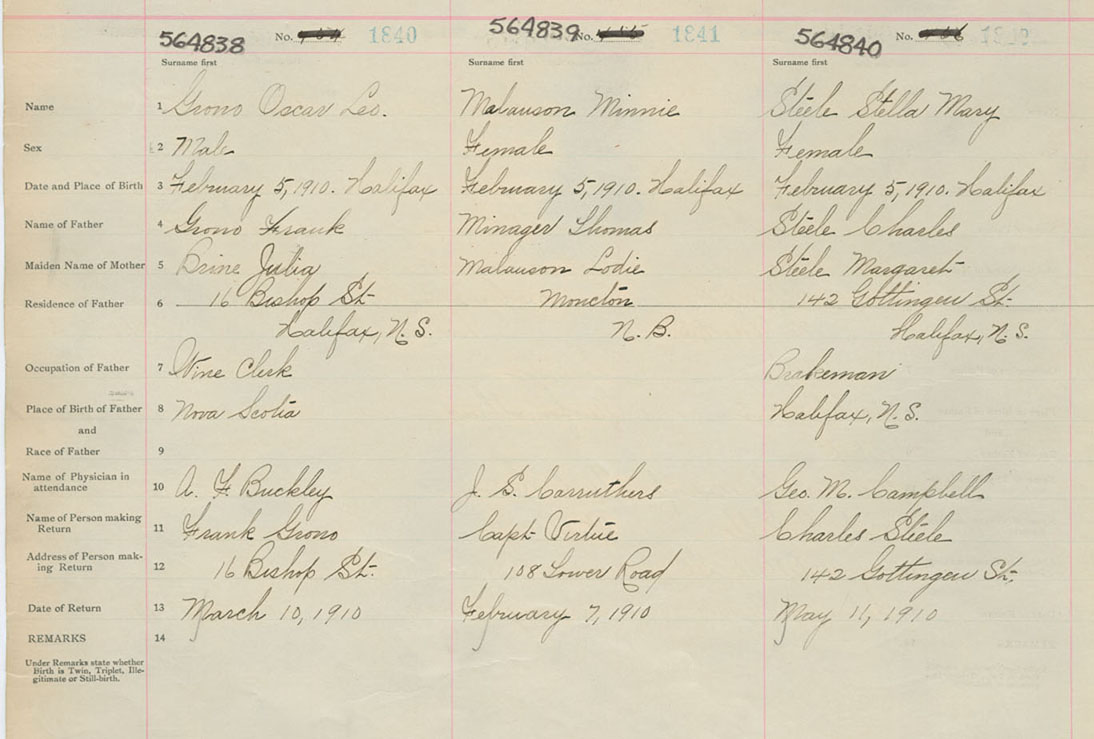 564838 No. 1840 564839 No. 1841 564840 No.
Surname first Surname first Surname first
Name 1 Grono Oscar Leo. Malauson Minnie Steele Stella Mary
Sex 2 Male Female Female
Date and Place of Birth 3 February 5, 1910. Halifax February 5, 1910. Halifax February 5, 1910. Halifax
Name of Father 4 Grono Frank Minager Thomas Steele Charles
Maiden Name of Mother 5 Brine Julia Malauson Lodie Steele Margaret
Residence of Father 6 16 Bishop St. Moncton 142 Gottingen St.
Halifax, N.S. N.B. Halifax, N.S.
Occupation of Father 7 Wine Clerk Brakeman
Place of Birth of Father 8 Nova Scotia Halifax, N.S.
and
Race of Father 9
Name of Physician in
attendance 10 A. F. Buckley J. S. Carruthers Geo. M. Campbell
Name of Person making
Return 11 Frank Grono Capt Virtue Charles Steele
Address of Person mak-
ing Return 12 16 Bishop St. 108 Lower Road 142 Gottingen St.
Date of Return 13 March 10, 1910 February 7, 1910 May 11, 1910
REMARKS 14
Under Remarks state whether
Birth is Twin, Triplet, Ille-
gitimate or Still-birth.